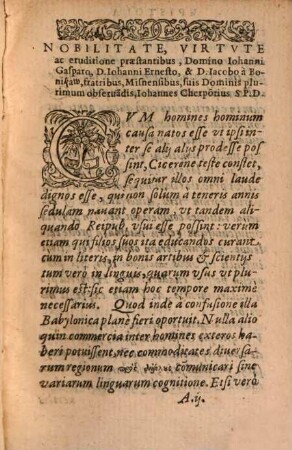 NOBILITATE, VIRTVTE
ac eruditione præstantibus, Domino Iohanni
Gasparo, D. Iohanni Ernesto, & D. Iacobo à Bo-
nikaw, fratribus, Misnensibus, suis Dominis plu-
rimum obseruādis, Iohannes Cherpōtius S.P.D.
CVM homines hominum
causa natos esse vt ipsi in-
ter se alÿ alÿs prodesse pos-
sint, Cicerone teste constet,
sequitur illos omni laude
dignos esse, qui non solùm à teneris annis
sedulam nauant operam vt tandem ali-
quando Reipub. vsui esse possint: verùm
etiam qui filios suos ita educandos curant
cum in literis, in bonis artibus & scientÿs
tum verò in linguis, quarum vsus vt plu-
rimus est: sic etiam hoc tempore maximè
necessarius. Quod inde à confusione illa
Babylonica planè fieri oportuit. Nulla alio
quin commercia inter homines exteros ha-
beri potuissent, nec commoditates diuersa-
rum regionum cōmunicari sine
variarum linguarum cognitione. Etsi verò
A.ij.